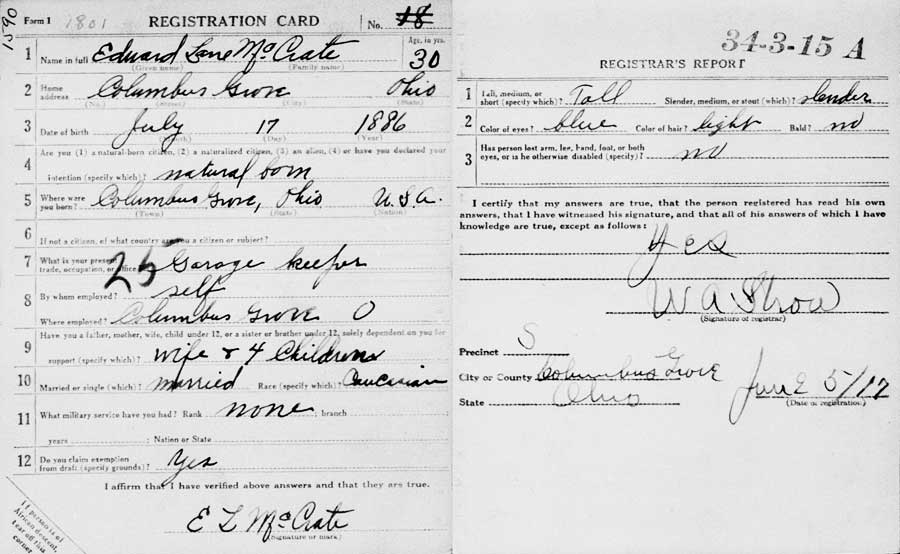 1590
Form 1 1801 REGISTRATION CARD No. 18
1 Name in full Edward Lane McCrate Age, in yrs. 30
(Given name) (Family name)
2 Home address Columbus Grove Ohio
(No.) (Street) (City) (State)
3 Date of birth July 17 1886
(Month) (Day) (Year)
4 Are you (1) a natural-born citizen, (2) a naturalized citizen, (3) an alien, (4) or have you declared your
intention (specify which)? natural born
5 Where were you born? Columbus Grove, Ohio U.S.A.
(Town) (State) (Nation)
6 If not a citizen, of what country are you a citizen or subject?
7 What is your present trade, occupation, or office? 25 Garage keeper
8 By whom employed? self
Where employed? Columbus Grove O
9 Have you a father, mother, wife, child under 12, or a sister or brother under 12, solely dependent on you for
support (specify which)? Wife & 4 Childrens
10 Married or single (which)? married Race (specify which)? Caucasian
11 What military service have you had? Rank none branch
years ; Nation or State
12 Do you claim exemption from draft (specify grounds)? Yes
I affirm that I have verified above answers and that they are true.
E L McCrate
(Signature or mark)
If person is of
African descent,
tear off this
corner
34-3-15 A
REGISTRAR'S REPORT
1 Tall, medium, or short (specify which)? Tall Slender, medium, or stout (which)? slender
2 Color of eyes? blue Color of hair? light Bald? no
3 Has person lost arm, leg, hand, foot, or both
eyes, or is he otherwise disabled (specify)? no
I certify that my answers are true, that the person registered has read his own
answers, that I have witnessed his signature, and that all of his answers of which I have
knowledge are true, except as follows:
Yes
W A
(Signature of registrar)
Precinct S
City or County Columbus Grove
State Ohio June 5/17
(Date of registration)